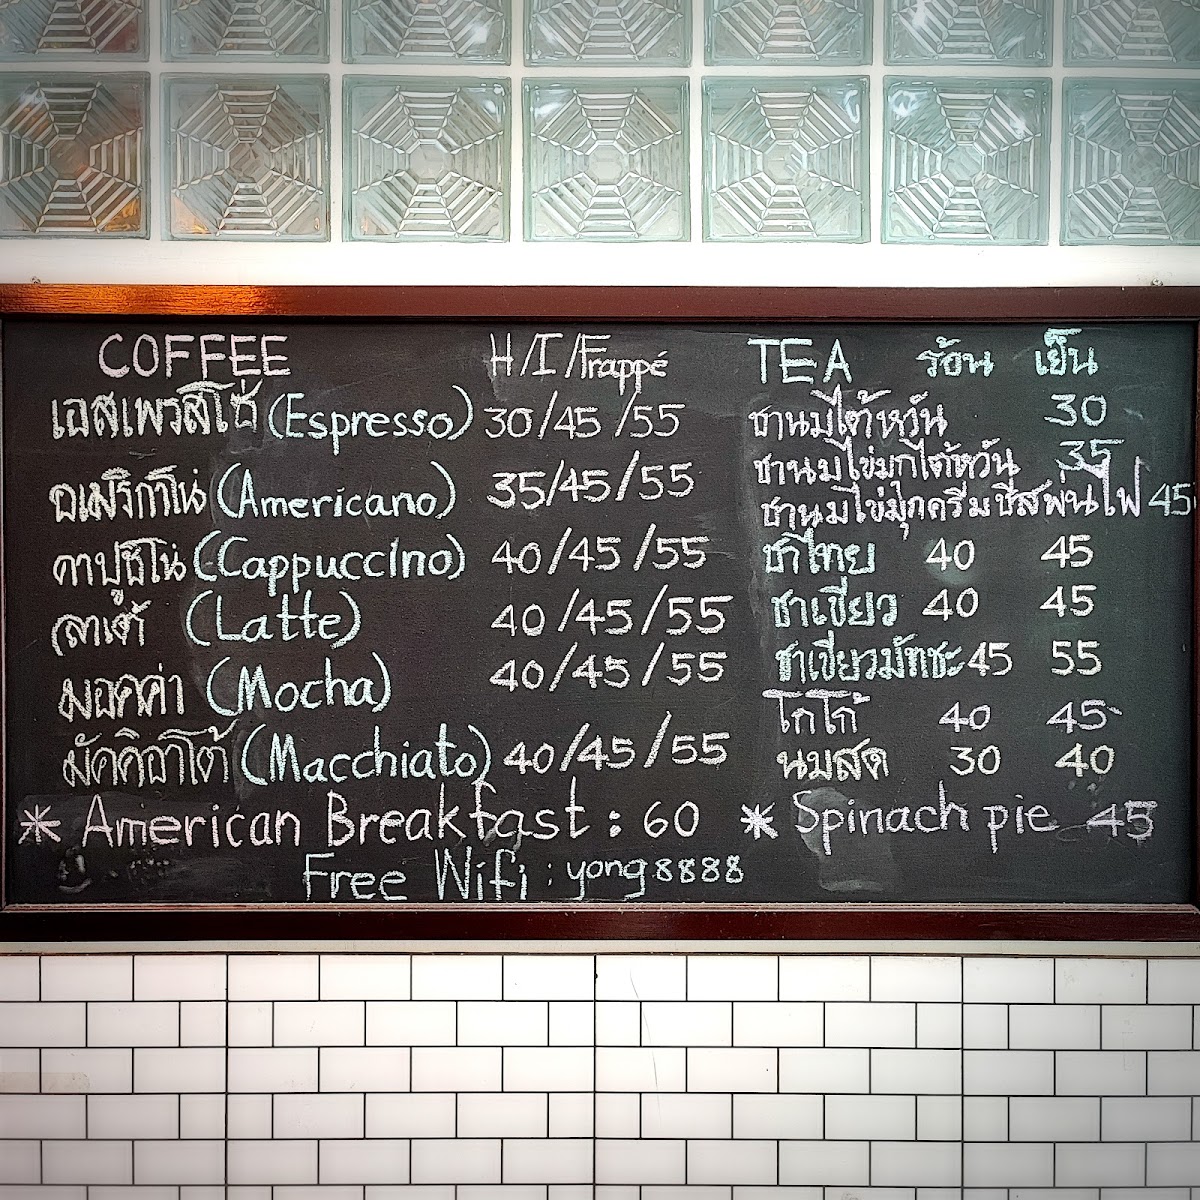 COFFEE H/I/Frappé
เอสเพรสโซ่ (Espresso) 30/45/55
อเมริกาโน่ (Americano) 35/45/55
คาปูชิโน่ (Cappuccino) 40/45/55
ลาเต้ (Latte) 40/45/55
มอคค่า (Mocha) 40/45/55
มัคคิอาโต้ (Macchiato) 40/45/55
TEA ร้อน เย็น
ชานมไต้หวัน 30
ชานมไข่มุกไต้หวัน 35
ชานมไข่มุกครีมชีสพ่นไฟ 45
ชาไทย 40 45
ชาเขียว 40 45
ชาเขียวมัทชะ 45 55
โกโก้ 40 45
นมสด 30 40
* American Breakfast : 60 * Spinach pie 45
Free Wifi : yong8888